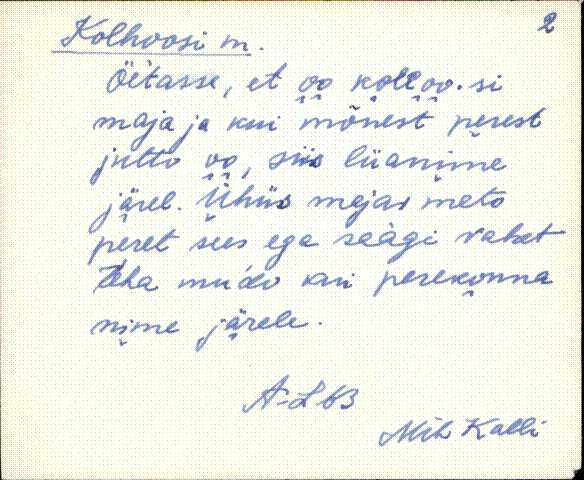 2
Kolhoosi m.
Öètasse, et oo kolloo.si
maja ja kui mõnest perest
jutto oo, siis lüanime
järel. Ühüs majas meto
peret sees ega seàgi vahet
teha muido kui perekonna
nime järele.
A-L 63
Mih Kalli